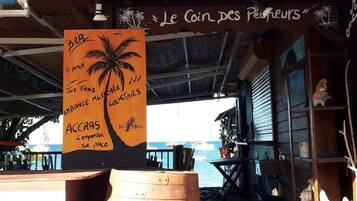 "Le Coin Des Pêcheurs"
BAR
Jus Frais
Ambiance Musicale
Cocktails
ACCRAS
à emporter
ou sur
place